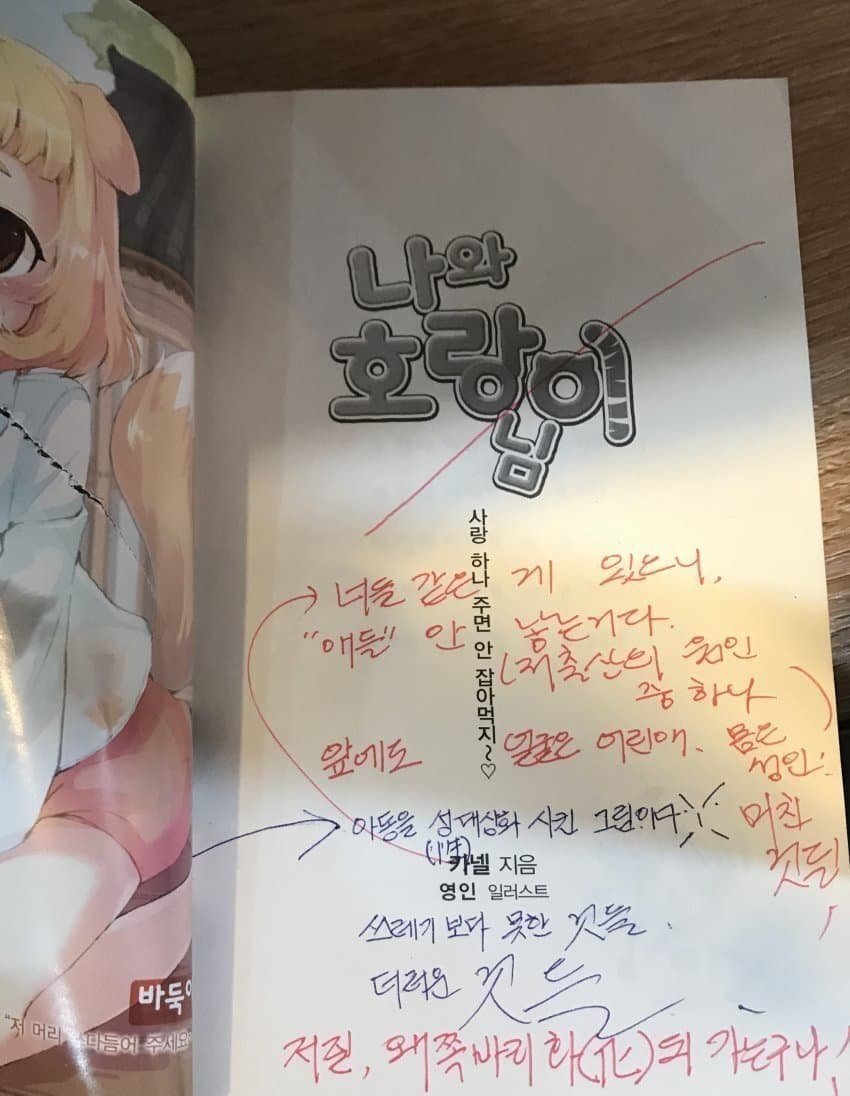 나와
호랑이
님
사랑 하나 주면 안 잡아먹지~♡
너들 같은 게 있으니,
"애들" 안 낳는거다.
(저출산의 원인
중 하나
앞에도 얼굴은 어린애. 몸은
성인!
미친
것들!
아동을 성대상화 시킨 그림이다
(性)
카넬 지음
영인 일러스트
쓰레기 보다 못한 것들.
더러운 것들
저질, 왜쪽바리 화(化)되 가는구나!
바둑이
"저 머리 다듬어 주세요